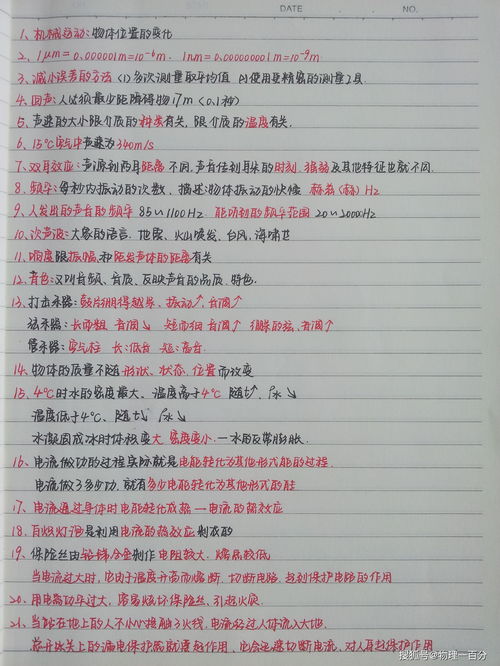 DATE NO.
1、机械运动:物体位置的变化
2、1μm=0.000001m=10⁻⁶m. 1nm=0.000000001m=10⁻⁹m
3、减小误差的方法 (1)多次测量取平均值 (2)使用更精密的测量工具.
4、回声:人必须最少距障碍物17m (0.1秒)
5、声速的大小跟介质的种类有关,跟介质的温度有关.
6、15℃空气中声速为340m/s
7、双耳效应:声源到两耳距离不同,声音传到耳朵的时刻、强弱及其他特征也就不同.
8、频率:每秒内振动的次数、描述物体振动的快慢 赫兹(赫)Hz
9、人发出的声音的频率 85~1100Hz 能听到的频率范围 20~20000Hz
10、次声波:大象的语言、地震、火山喷发、台风、海啸
11、响度跟振幅、和距发声体的距离有关
12、音色:又叫音频、音质、反映声音的品质、特色.
13、打击乐器:鼓片绷得越紧、振动↑,音调↑
弦乐器:长而粗 音调↘ 短而细 音调↑ 绷紧的弦、音调↑
管乐器:空气柱 长:低音 短:高音.
14、物体的质量不随形状、状态、位置而改变
15、4℃时水的密度最大、温度高于4℃ 随t↑ ρ水↘
温度低于4℃、随t↘ ρ水↘
水凝固成冰时体积变大 密度变小.—水的反常膨胀.
16、电流做功的过程实际就是电能转化为其他形式能的过程.
电流做了多少功,就有多少电能转化为其他形式的能
17、电流通过导体时电能转化成热—电流的热效应
18、白炽灯泡是利用电流的热效应制成的
19、保险丝由铅锑合金制作 电阻较大、熔点较低
当电流过大时,它由于温度升高而熔断、切断电路,起到保护电路的作用
20、用电器功率过大,容易烧坏保险丝、引起火灾.
21、当站在地上的人不小心接触了火线,电流经过人体流入大地.
总开关上的漏电保护器就要起作用,也会迅速切断电流、对人起保护作用
搜狐号@物理一百分